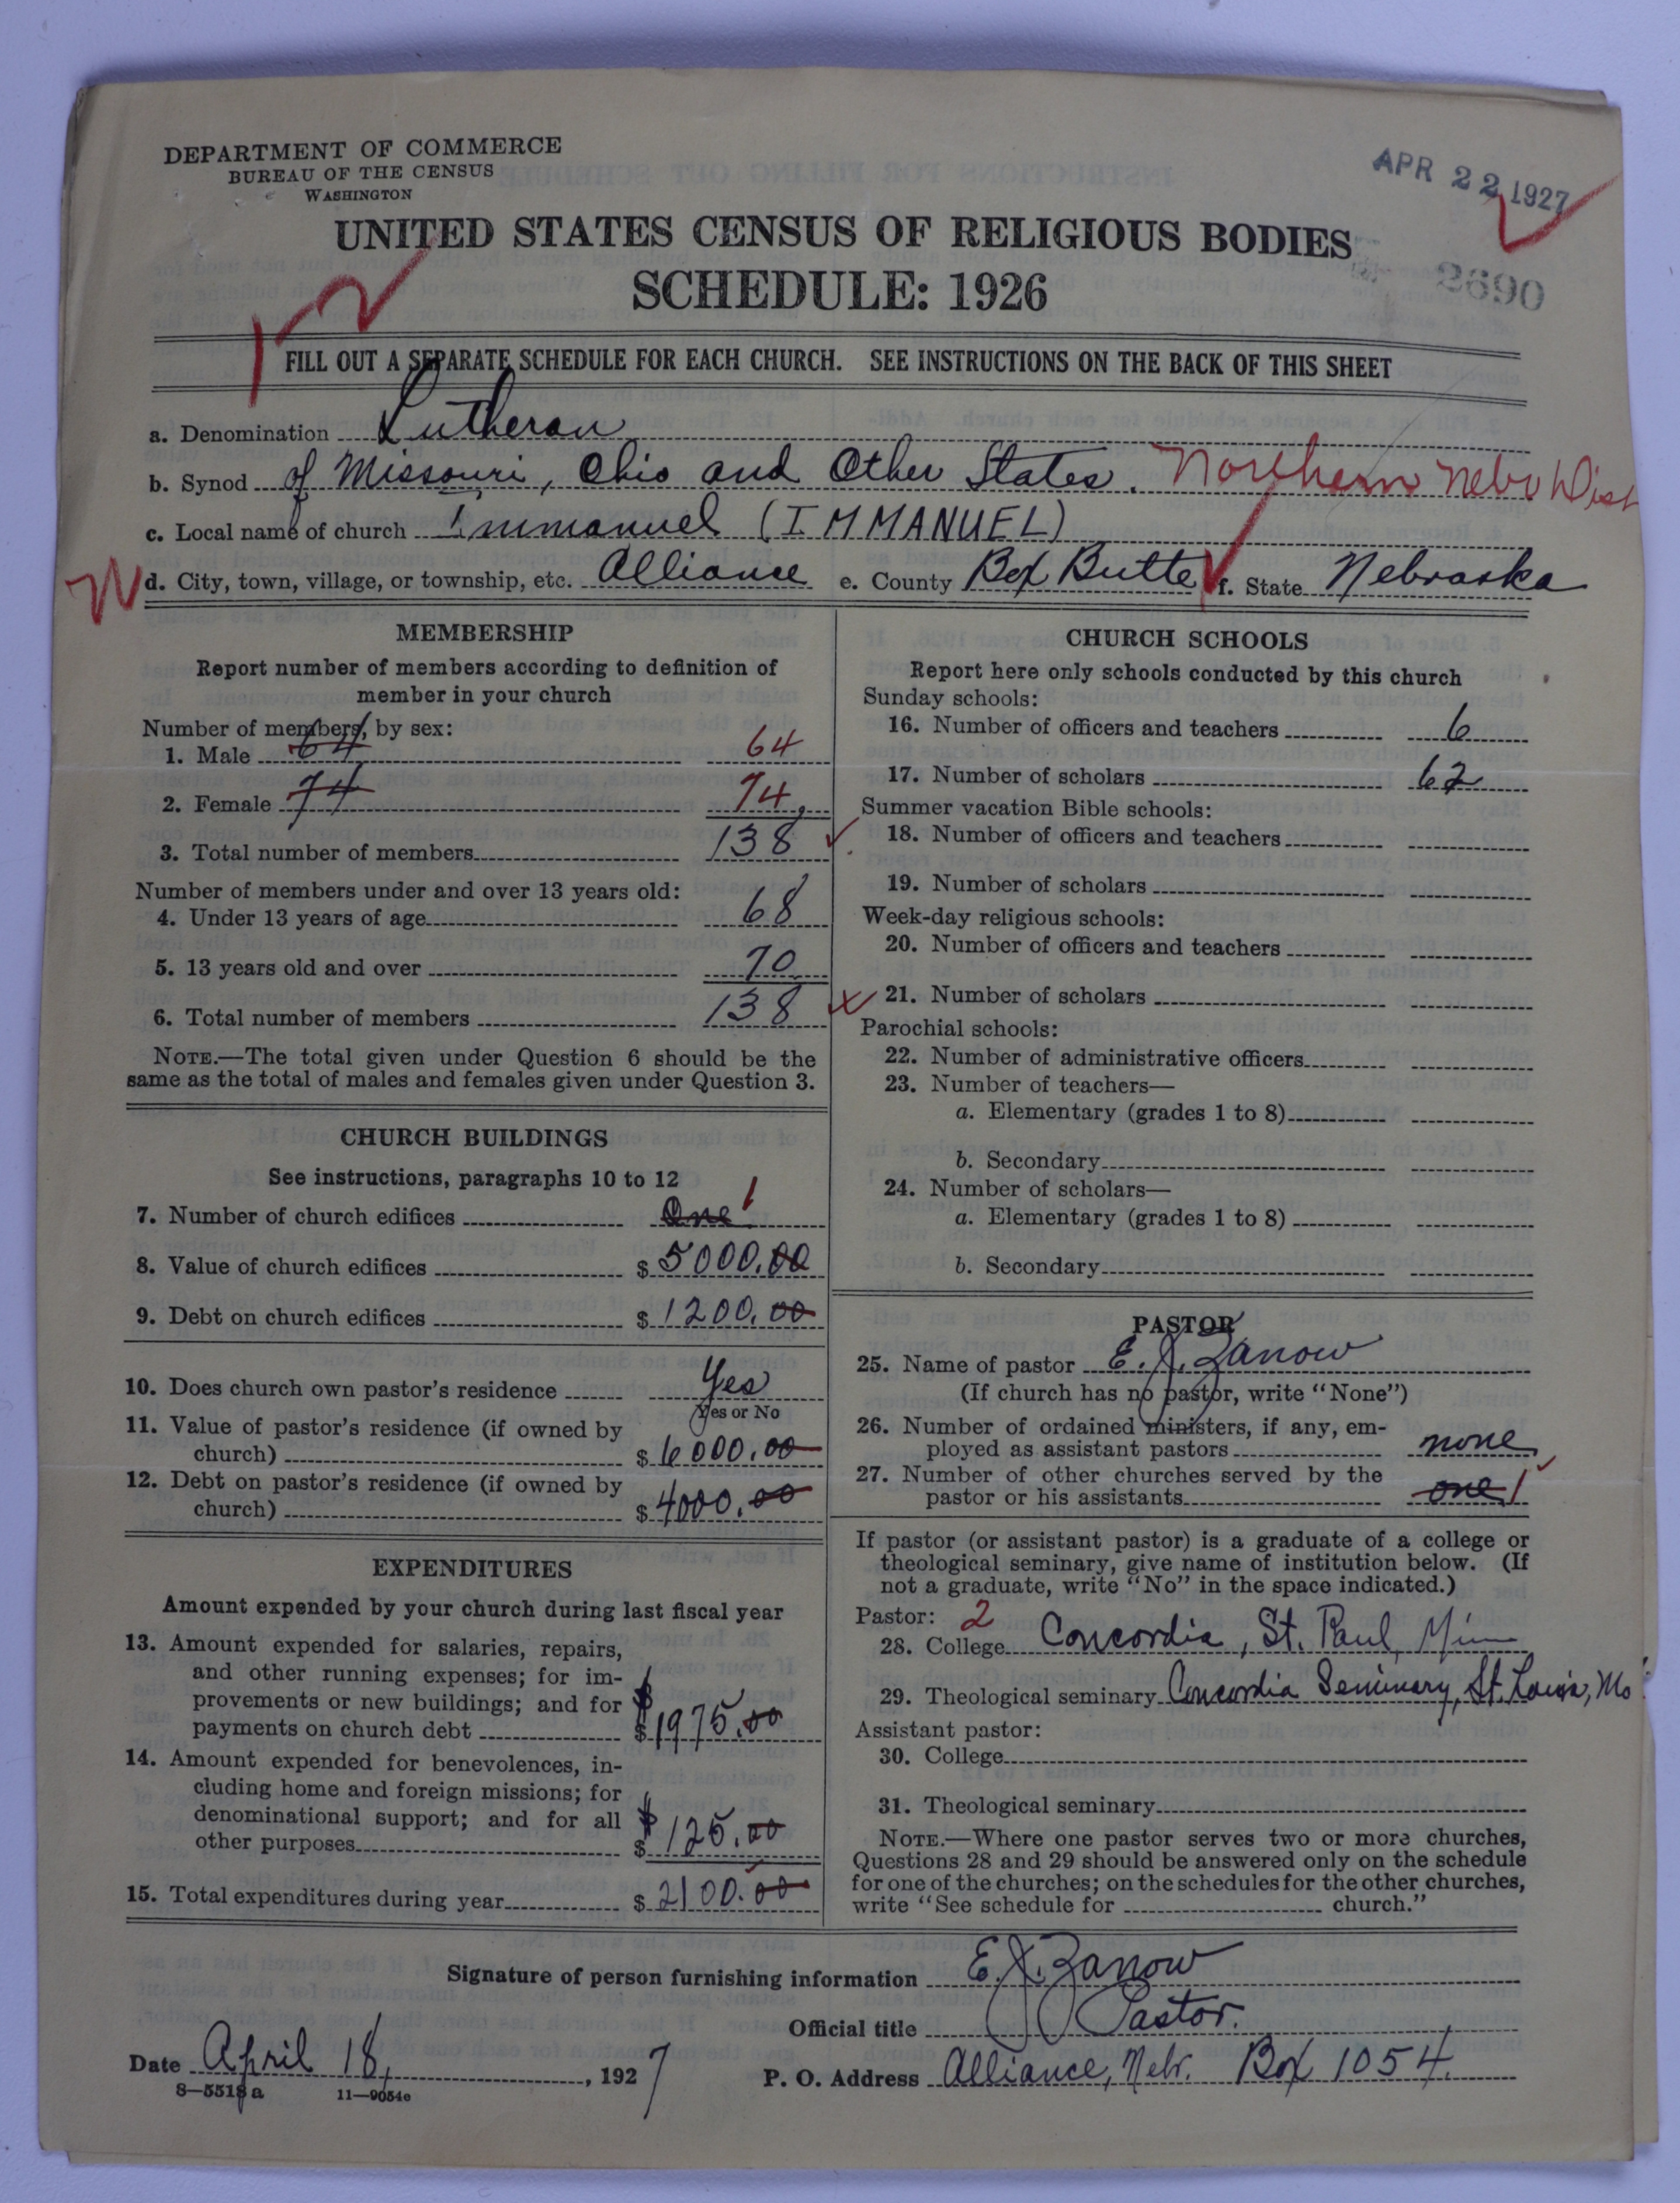 DEPARTMENT OF COMMERCE
BUREAU OF THE CENSUS
WASHINGTON
APR 22 1927
UNITED STATES CENSUS OF RELIGIOUS BODIES
SCHEDULE: 1926
2690
FILL OUT A SEPARATE SCHEDULE FOR EACH CHURCH. SEE INSTRUCTIONS ON THE BACK OF THIS SHEET
a. Denomination Lutheran
b. Synod of Missouri, Ohio and Other States. Northern Nebr Dist
c. Local name of church Immanuel (IMMANUEL)
d. City, town, village, or township, etc. Alliance e. County Box Butte f. State Nebraska
MEMBERSHIP
Report number of members according to definition of
member in your church
Number of members, by sex:
1. Male 64 64
2. Female 74 74
3. Total number of members 138
Number of members under and over 13 years old:
4. Under 13 years of age 68
5. 13 years old and over 70
6. Total number of members 138
NOTE.—The total given under Question 6 should be the
same as the total of males and females given under Question 3.
CHURCH BUILDINGS
See instructions, paragraphs 10 to 12
7. Number of church edifices One 1
8. Value of church edifices $ 5000.00
9. Debt on church edifices $ 1200.00
10. Does church own pastor's residence Yes
Yes or No
11. Value of pastor's residence (if owned by
church) $ 6000.00
12. Debt on pastor's residence (if owned by
church) $ 4000.00
EXPENDITURES
Amount expended by your church during last fiscal year
13. Amount expended for salaries, repairs,
and other running expenses; for im-
provements or new buildings; and for $
payments on church debt $ 1975.00
14. Amount expended for benevolences, in-
cluding home and foreign missions; for
denominational support; and for all $
other purposes $ 125.00
15. Total expenditures during year $ 2100.00
CHURCH SCHOOLS
Report here only schools conducted by this church
Sunday schools:
16. Number of officers and teachers 6
17. Number of scholars 62
Summer vacation Bible schools:
18. Number of officers and teachers
19. Number of scholars
Week-day religious schools:
20. Number of officers and teachers
21. Number of scholars
Parochial schools:
22. Number of administrative officers
23. Number of teachers—
a. Elementary (grades 1 to 8)
b. Secondary
24. Number of scholars—
a. Elementary (grades 1 to 8)
b. Secondary
PASTOR
25. Name of pastor E. J. Zanow
(If church has no pastor, write "None")
26. Number of ordained ministers, if any, em-
ployed as assistant pastors none
27. Number of other churches served by the
pastor or his assistants one 1
If pastor (or assistant pastor) is a graduate of a college or
theological seminary, give name of institution below. (If
not a graduate, write "No" in the space indicated.)
Pastor: 2
28. College Concordia, St. Paul, Minn
29. Theological seminary Concordia Seminary, St. Louis, Mo.
Assistant pastor:
30. College
31. Theological seminary
NOTE.—Where one pastor serves two or more churches,
Questions 28 and 29 should be answered only on the schedule
for one of the churches; on the schedules for the other churches,
write "See schedule for church."
Signature of person furnishing information E. J. Zanow
Official title Pastor.
Date April 18, 1927 P. O. Address Alliance, Nebr. Box 1054
8—5518 a 11—9054e